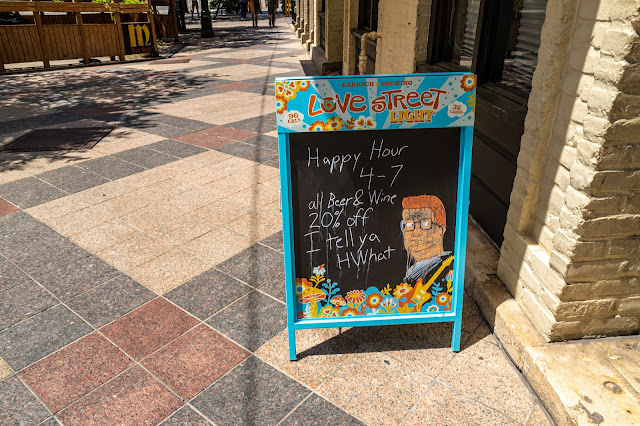 KARBACH BREWING
LOVE STREET
LIGHT
96
CALS
Happy Hour
4-7
all Beer & Wine
20% off
I tell ya
HWhat